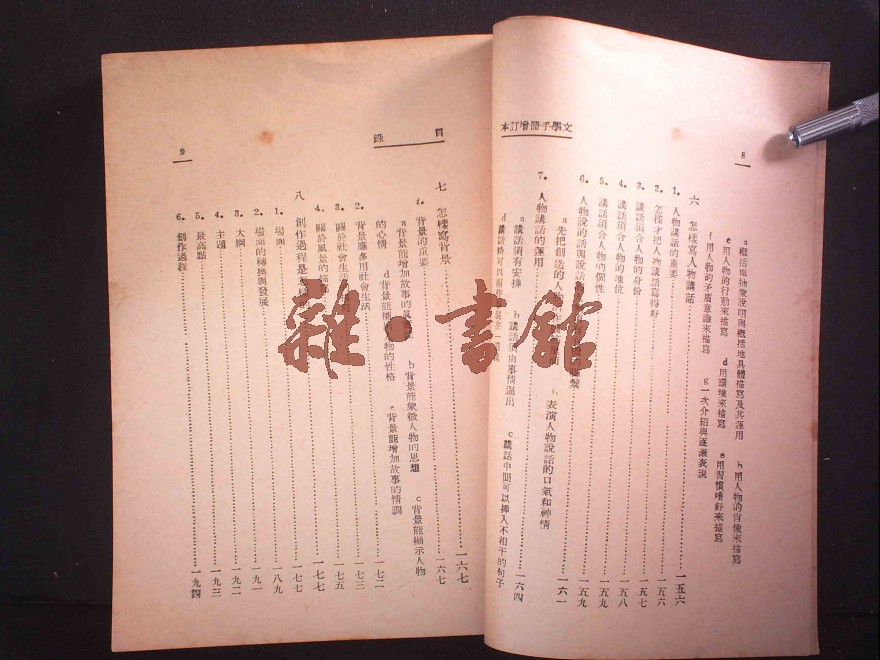 文學手冊增訂本
8
a 概括地抽象說明與概括地具體描寫及其運用 b 用人物的肖像來描寫
c 用人物的行動來描寫 d 用環境來描寫 e 用習慣嗜好來描寫
f 用人物的矛盾意識來描寫 g 一次介紹與逐漸表現
六 怎樣寫人物講話 一五六
1. 人物講話的重要 一五六
2. 怎樣才把人物講話寫得好 一五六
3. 講話須合人物的身份 一五七
4. 講話須合人物的地位 一五八
5. 講話須合人物的個性 一五九
6. 人物說的話與說話 繫 一五九
a 先把創造的人物 b 表演人物說話的口氣和神情
7. 人物講話的運用 一六一
a 講話須有安排 b 講話須由事情逼出 c 講話中間可以插入不相干的句子
d 講話時可以 一六四
目錄
9
七 怎樣寫背景 一六七
1. 背景的重要 一六七
a 背景能增加故事的真 b 背景能象徵人物的思想 c 背景能顯示人物
的心情 d 背景能 物的性格 e 背景能增加故事的情調
2. 背景應多用社會生活 一七二
3. 關於社會生活 一七三
4. 關於風景的描寫 一七五
八 創作過程是怎樣 一七七
1. 場面 一七七
2. 場面的轉換與發展 一八九
3. 大綱 一九一
4. 主題 一九二
5. 最高點 一九三
6. 創作過程 一九四
雜·書館